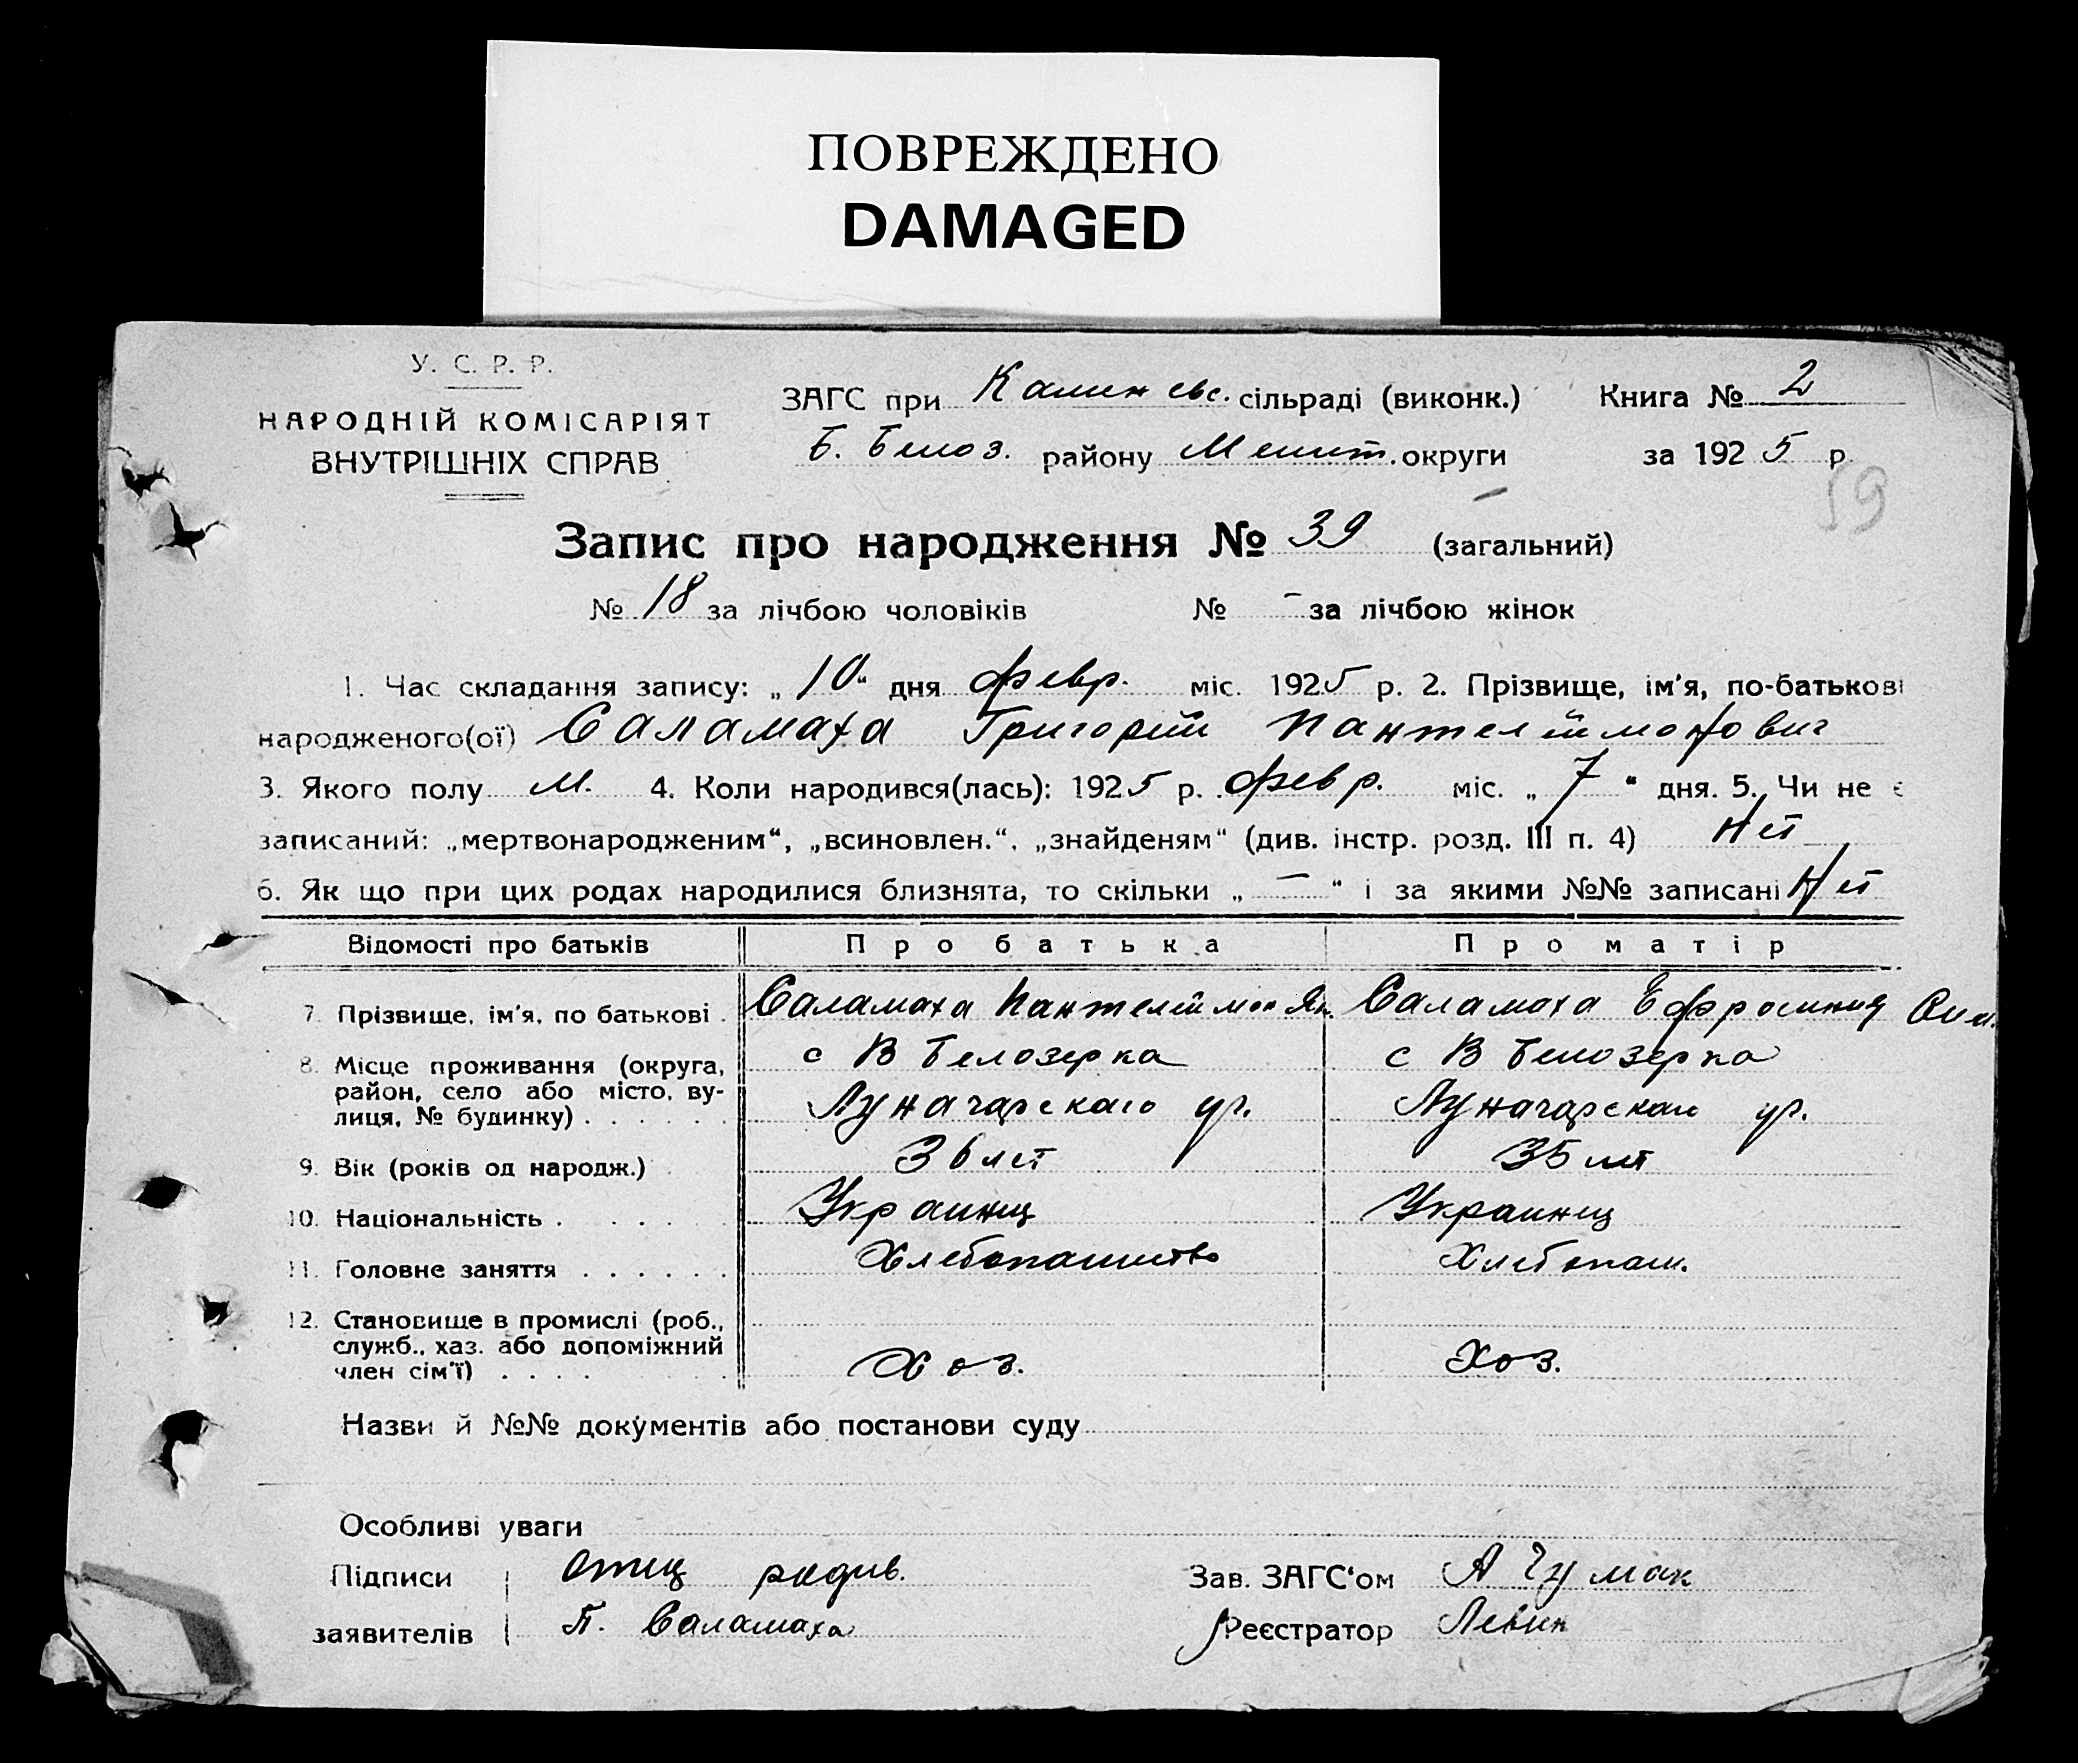 ПОВРЕЖДЕНО
DAMAGED
У. С. Р. Р.
НАРОДНІЙ КОМІСАРІЯТ
ВНУТРІШНІХ СПРАВ
ЗАГС при Каменевс. сільраді (виконк.) Книга № 2
Б. Белоз. району Мелит. округи за 1925 р.
59
Запис про народження № 39 (загальний)
№ 18 за лічбою чоловіків № - за лічбою жінок
1. Час складання запису: „10“ дня февр. міс. 1925 р. 2. Прізвище, ім'я, по-батькові
народженого(ої) Саламаха Григорий Пантелеймонович
3. Якого полу м. 4. Коли народився(лась): 1925 р. февр. міс. „7“ дня. 5. Чи не є
записаний: „мертвонародженим“, „всиновлен.“, „знайденям“ (див. інстр. розд. III п. 4) Нет
6. Як що при цих родах народилися близнята, то скільки „-“ і за якими №№ записані Нет
Відомості про батьків Про батька Про матір
7. Прізвище, ім'я, по батькові . Саламаха Пантелеймон Як. Саламаха Ефросиния
8. Місце проживання (округа, район, село або місто, вулиця, № будинку) . . . . . . с В Белозерка Луначарскаго ул. с В Белозерка Луначарскаго ул.
9. Вік (років од народж.) . 36 лет 35 лет
10. Національність . . . . . Украинц Украинц
11. Головне заняття . . . . . . Хлебопашество Хлебопаш.
12. Становище в промислі (роб., служб., хаз. або допоміжний член сім'ї) . . . . Хоз. Хоз.
Назви й №№ документів або постанови суду
Особливі уваги
Підписи Отец родив. Зав. ЗАГС'ом А Чумак
заявителів П. Саламаха Реєстратор Левин